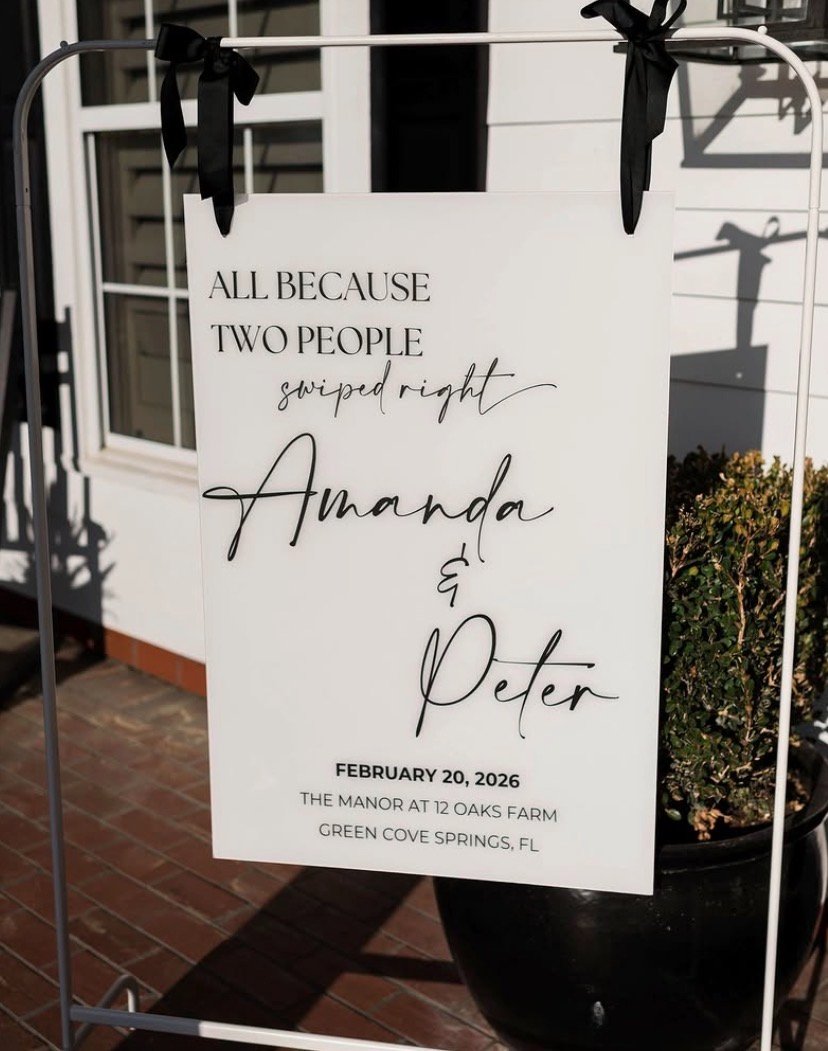 ALL BECAUSE
TWO PEOPLE
swiped right
Amanda
&
Peter
FEBRUARY 20, 2026
THE MANOR AT 12 OAKS FARM
GREEN COVE SPRINGS, FL